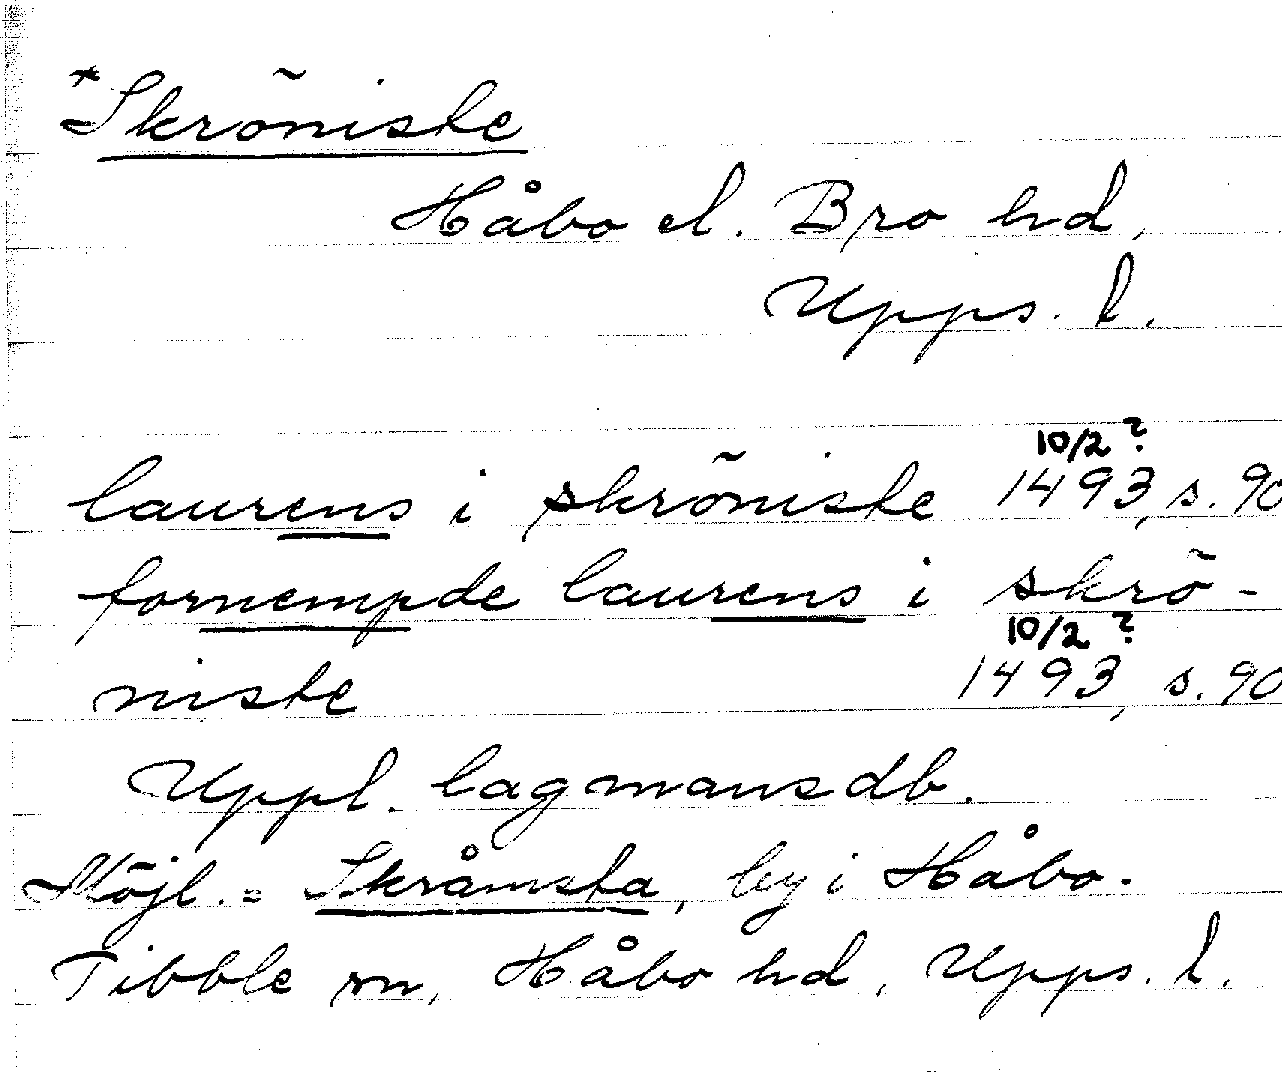 *Skrõniste
Håbo el. Bro hd,
Upps. l.
10/2 ?
laurens i skrõniste 1493, s. 90
fornempde laurens i skrõ-
10/2 ?
niste 1493, s. 90
Uppl. lagmansdb.
Möjl. = Skråmsta, by i Håbo-
Tibble sn, Håbo hd, Upps. l.